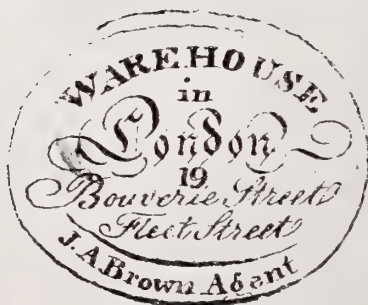 WAREHOUSE
in
London
19
Bouverie Street
Fleet Street
J. A Brown Agent